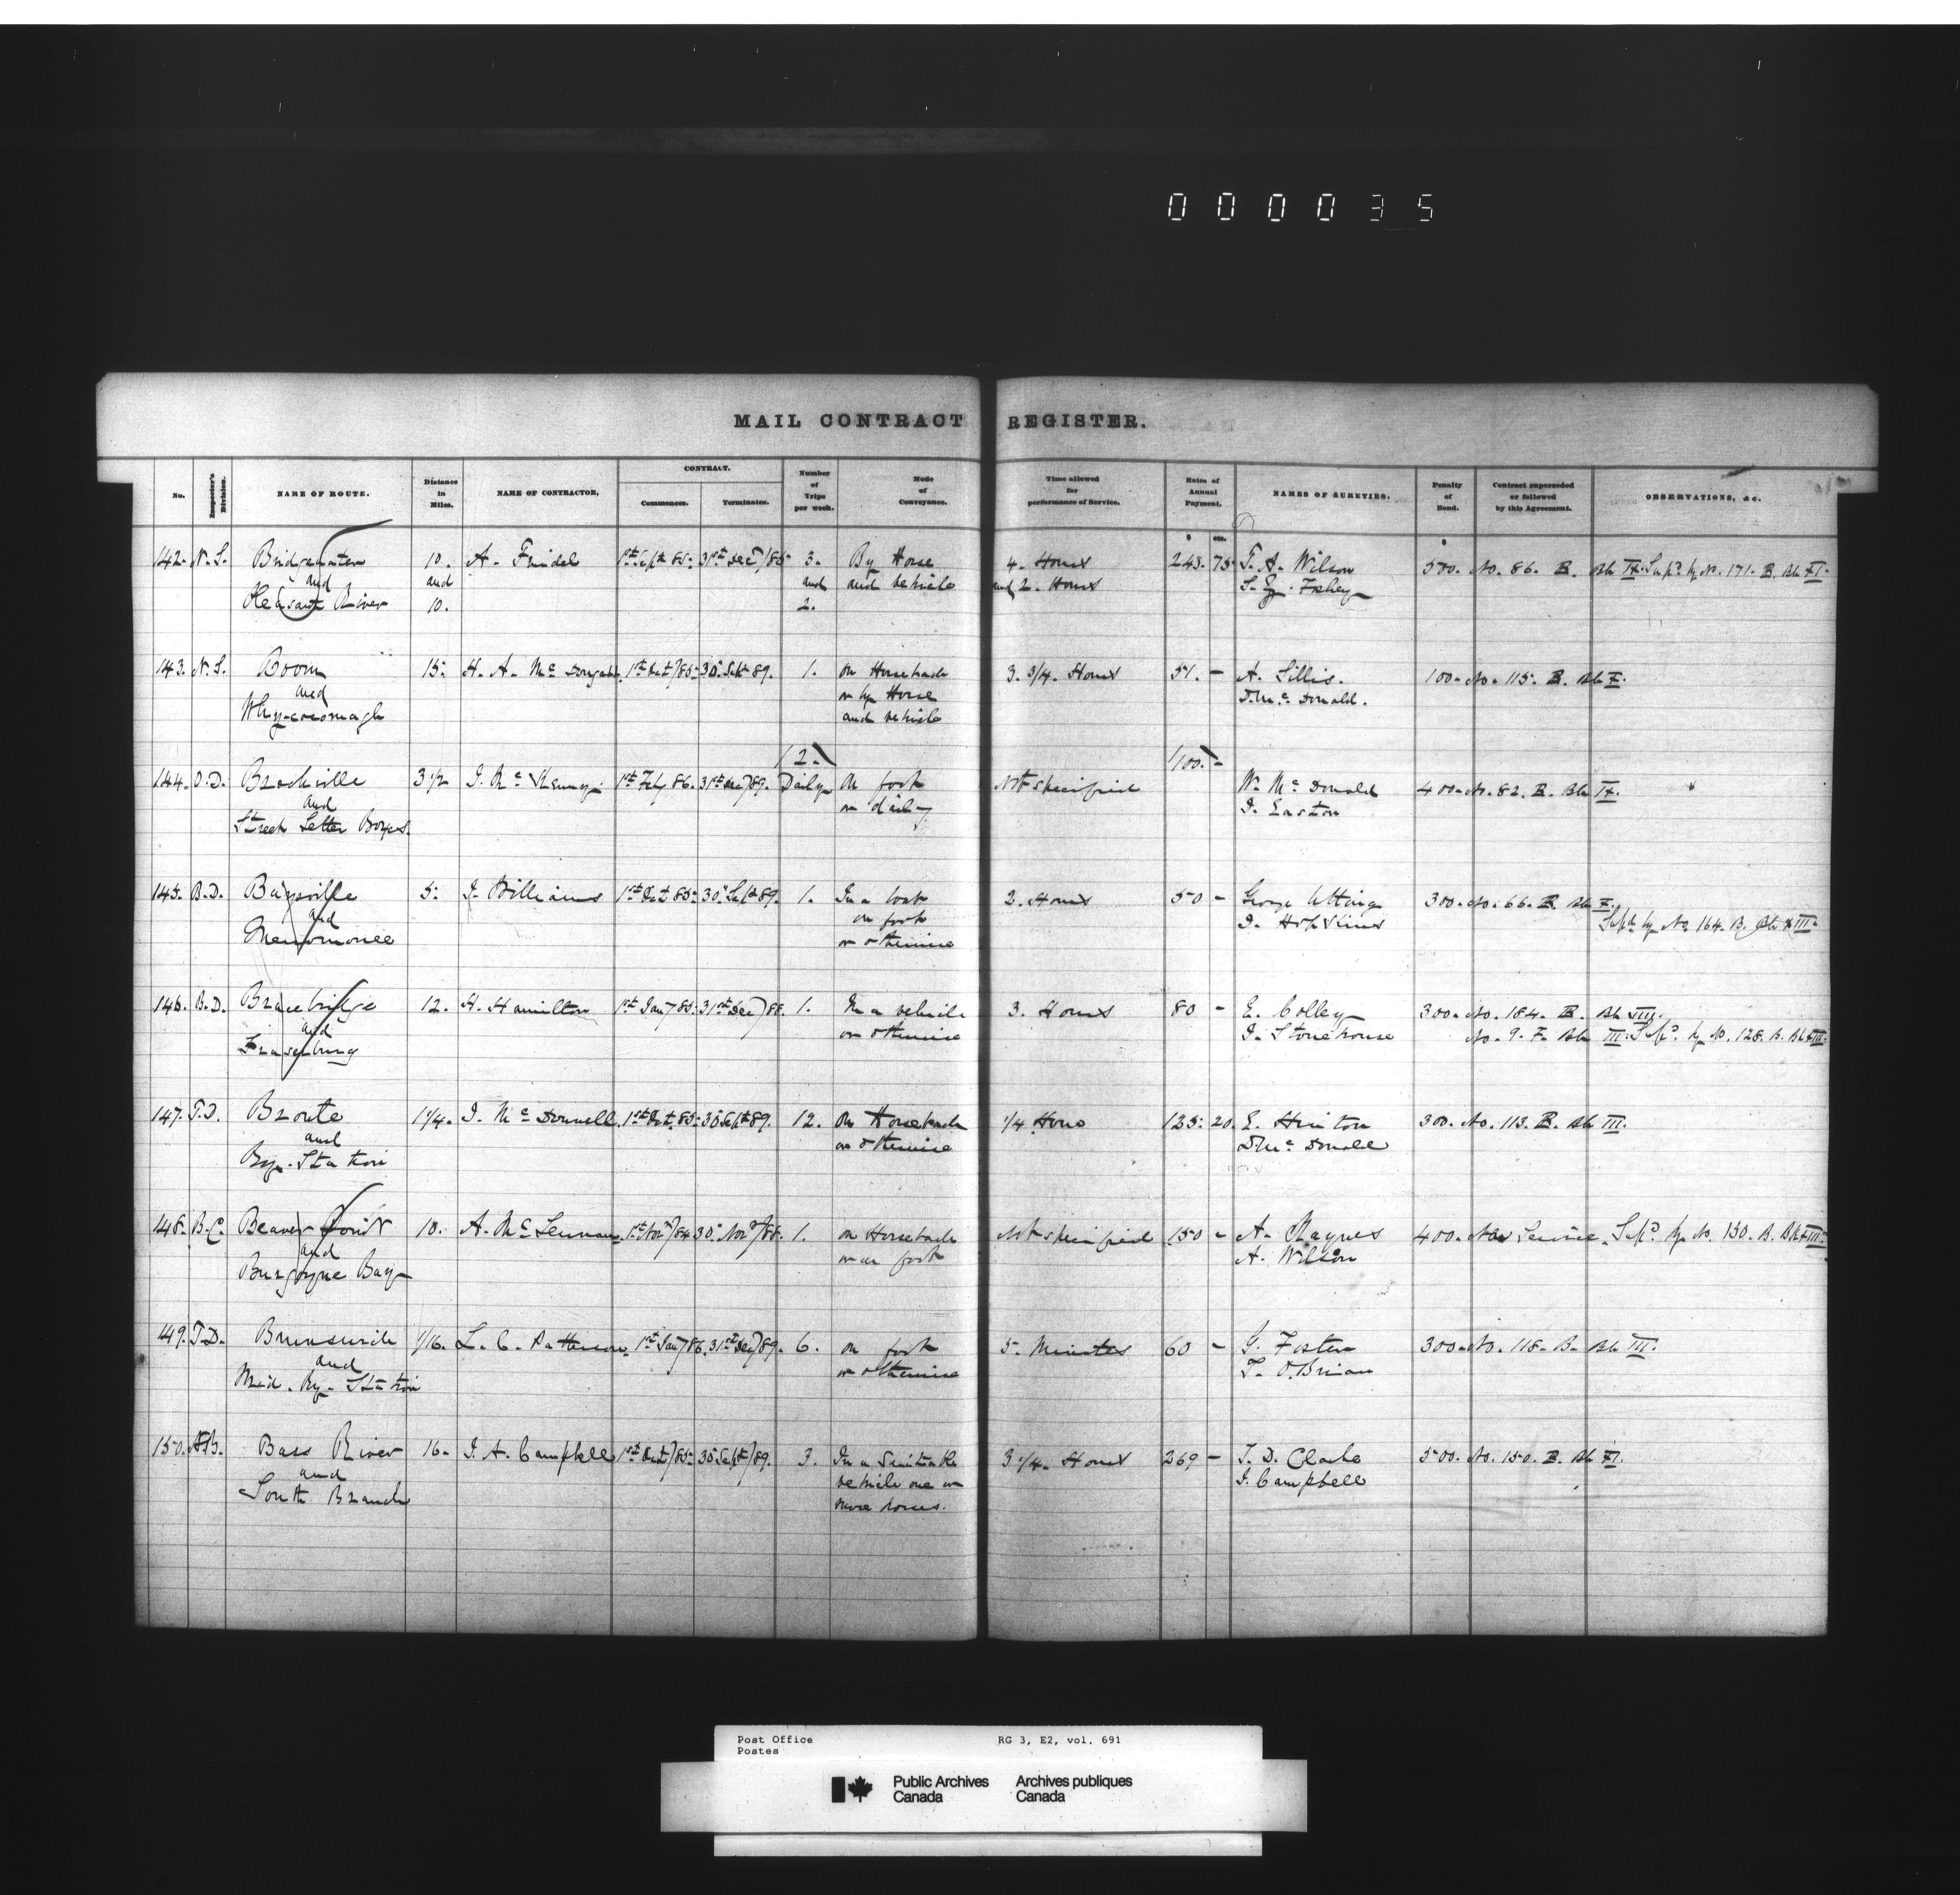 000035
MAIL CONTRACT REGISTER.
No. Inspector's Division. NAME OF ROUTE. Distance in Miles. NAME OF CONTRACTOR. CONTRACT. Commences. Terminates. Number of Trips per week. Mode of Conveyance. Time allowed for performance of Service. Rates of Annual Payment. NAMES OF SURETIES. Penalty of Bond. Contract superseded or followed by this Agreement. OBSERVATIONS, &c.
$ cts.
142. N.S. Bridgewater 10. A. 1st Sept 85. 31st Dec 3. By Horse 4. Hours 243. 75 A. Wilson 500. No. 86. B. Bk IX. Supd by No. 171. B. Bk XI.
and and and and vehicle and 2. Hours
Pleasant River 10. 2.
143. N.S. Boom 15. H. A. McDougall 1st Oct/85. 30 Sept 89. 1. on Horseback 3. 3/4. Hours 51. - A. Gillis. 100. No. 115. B. Bk X.
and or by Horse D. McDonald.
Whycocomagh and vehicle
(2.) (100.) -
144. O.D. Brockville 3 1/2 1st Feby 86. 31st Dec/89. Daily On foot Not specified W. McDonald 400. No. 82. B. Bk IX.
and J. Easton
Street Letter Boxes.
145. B.D. Baysville 5. J. Williams 1st Oct 85. 30 Sept 89. 1. In a boat 2. Hours 50 - George 300. No. 66. B. Bk X.
and on foot J. Hopkins Supd by No. 164. B. Bk XIII.
Menomonee or otherwise
146. B.D. Bracebridge 12. H. Hamilton 1st Jany 85. 31st Dec/88. 1. In a vehicle 3. Hours 80 - E. Colley 300. No. 184. B. Bk VIII.
and or otherwise J. Stonehouse No. 9. F. Bk III. Supd by No. 128. B. Bk XIII.
Fraserburg
147. T.D. Bronte 1 1/4. J. McDonnell 1st Oct 85. 30 Sept 89. 12. On Horseback 1/4 Hour 125. 20. E. Hinton 300. No. 113. B. Bk III.
and or otherwise D. McDonald
Ry. Station
148. B.C. Beaver Point 10. A. McLennan 1st Nov/84 30 Nov/88. 1. on Horseback Not specified 150 - A. Raynes 400. New Service. Supd by No. 130. B. Bk XIII.
and or on foot A. Wilson
Burgoyne Bay
149. T.D. 1/16. L. C. Patterson 1st Jany 86. 31st Dec/89. 6. on foot 5. Minutes 60 - G. Foster 300. No. 118. B. Bk III.
and or otherwise T. O'Brien
Mid. Ry. Station
150. N.B. Bass River 16. J. A. Campbell 1st Oct/85. 30 Sept/89. 3. In a Suitable 3 1/4. Hours 269 - T. D. Clarke 500. No. 150. B. Bk XI.
and vehicle one or J. Campbell
South Branch more horses.
Post Office RG 3, E2, vol. 691
Postes
Public Archives Archives publiques
Canada Canada